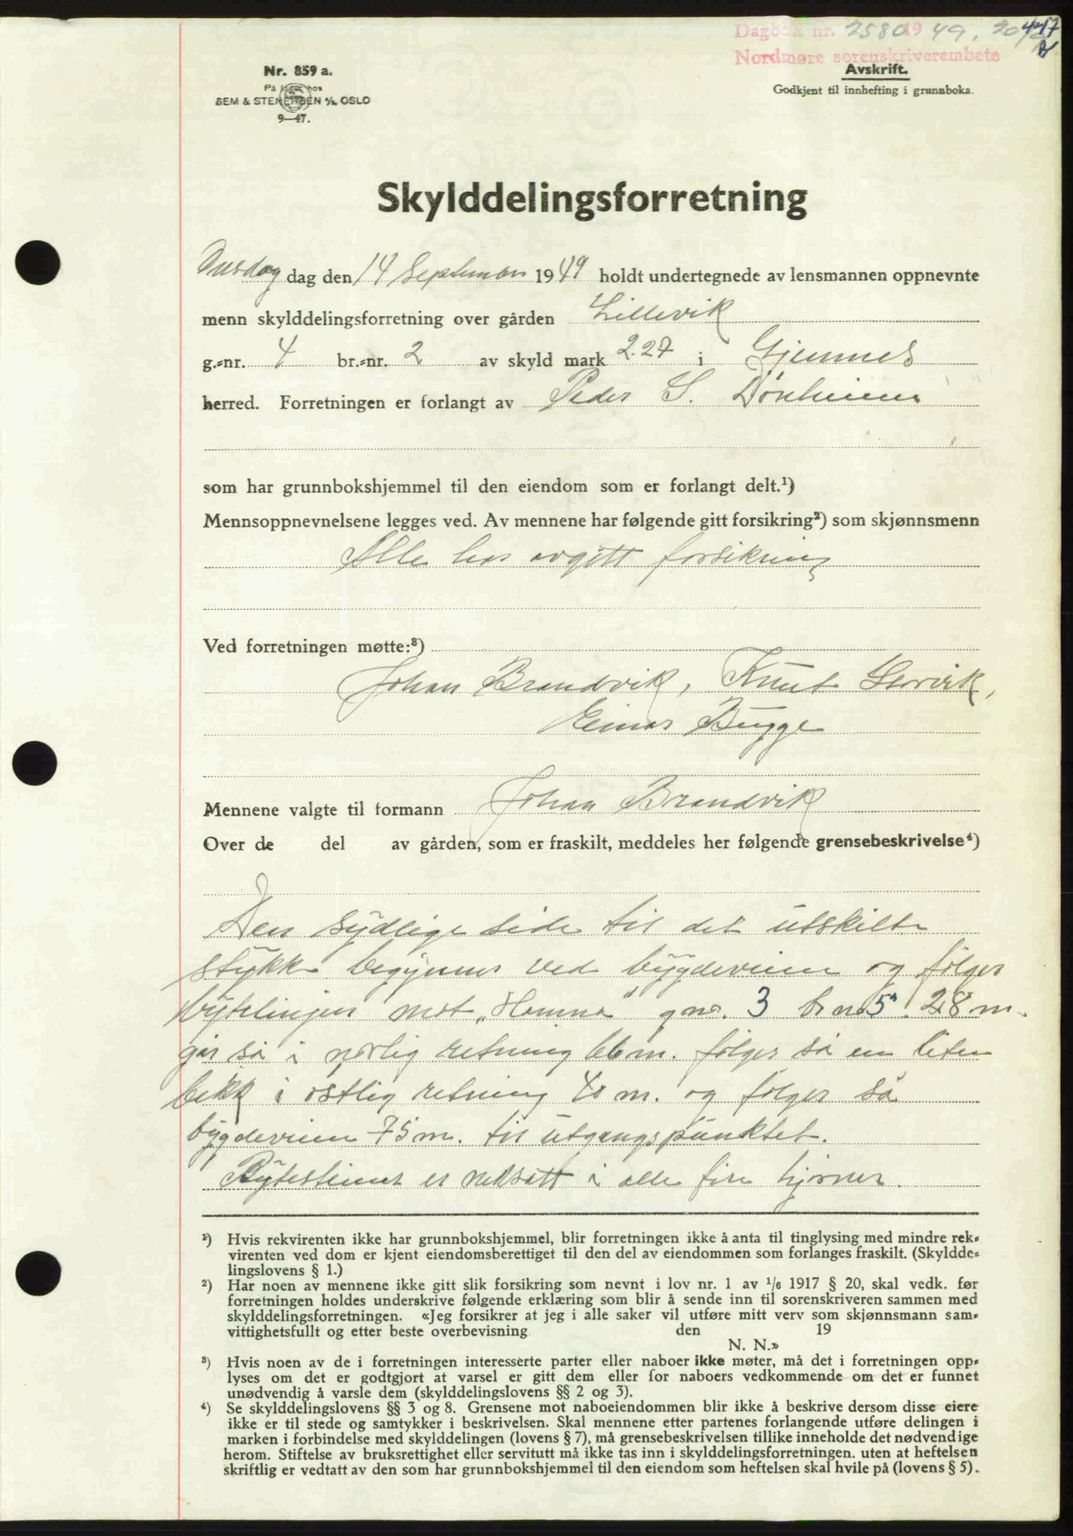 Dagbok nr. 2580 1949, 20/9 447
Nordmøre sorenskriverembete B
Nr. 859 a.
På lager hos
SEM & STENERSEN A/S, OSLO
9—47.
Avskrift.
Godkjent til innhefting i grunnboka.
Skylddelingsforretning
Onsdag dag den 14 September 1949 holdt undertegnede av lensmannen oppnevnte
menn skylddelingsforretning over gården Lillevik
g.-nr. 4 br.-nr. 2 av skyld mark 2.27 i Gjemnes
herred. Forretningen er forlangt av Peder S. Dønheim
som har grunnbokshjemmel til den eiendom som er forlangt delt.¹)
Mennsoppnevnelsene legges ved. Av mennene har følgende gitt forsikring²) som skjønnsmenn
Alle har avgitt forsikring
Ved forretningen møtte:³)
Johan Brandvik, Knut Storvik,
Einar Bugge
Mennene valgte til formann Johan Brandvik
Over de del av gården, som er fraskilt, meddeles her følgende grensebeskrivelse⁴)
Den sydlige side til det utskilte
stykke begynner ved bygdeveien og følger
bytelinjen mot „Hamna" gnr. 3 brn 5ᵃ. 28 m.
går så i nørlig retning 66 m. følger så en liten
bekk i østlig retning 40 m. og følger så
bygdeveien 75 m. til utgangspunktet.
Bytesteiner er nedsatt i alle fire hjørner.
¹) Hvis rekvirenten ikke har grunnbokshjemmel, blir forretningen ikke å anta til tinglysing med mindre rek-
virenten ved dom er kjent eiendomsberettiget til den del av eiendommen som forlanges fraskilt. (Skyldde-
lingslovens § 1.)
²) Har noen av mennene ikke gitt slik forsikring som nevnt i lov nr. 1 av 1/6 1917 § 20, skal vedk. før
forretningen holdes underskrive følgende erklæring som blir å sende inn til sorenskriveren sammen med
skylddelingsforretningen. «Jeg forsikrer at jeg i alle saker vil utføre mitt verv som skjønnsmann sam-
vittighetsfullt og etter beste overbevisning den 19
N. N.»
³) Hvis noen av de i forretningen interesserte parter eller naboer ikke møter, må det i forretningen opp-
lyses om det er godtgjort at varsel er gitt dem eller for naboers vedkommende om det er funnet
unødvendig å varsle dem (skylddelingslovens §§ 2 og 3).
⁴) Se skylddelingslovens §§ 3 og 8. Grensene mot naboeiendommen blir ikke å beskrive dersom disse eiere
ikke er til stede og samtykker i beskrivelsen. Skal mennene etter partenes forlangende utføre delingen i
marken i forbindelse med skylddelingen (lovens § 7), må grensebeskrivelsen tillike inneholde det nødvendige
herom. Stiftelse av bruksrettighet eller servitutt må ikke tas inn i skylddelingsforretningen. uten at heftelsen
skriftlig er vedtatt av den som har grunnbokshjemmel til den eiendom som heftelsen skal hvile på (lovens § 5).